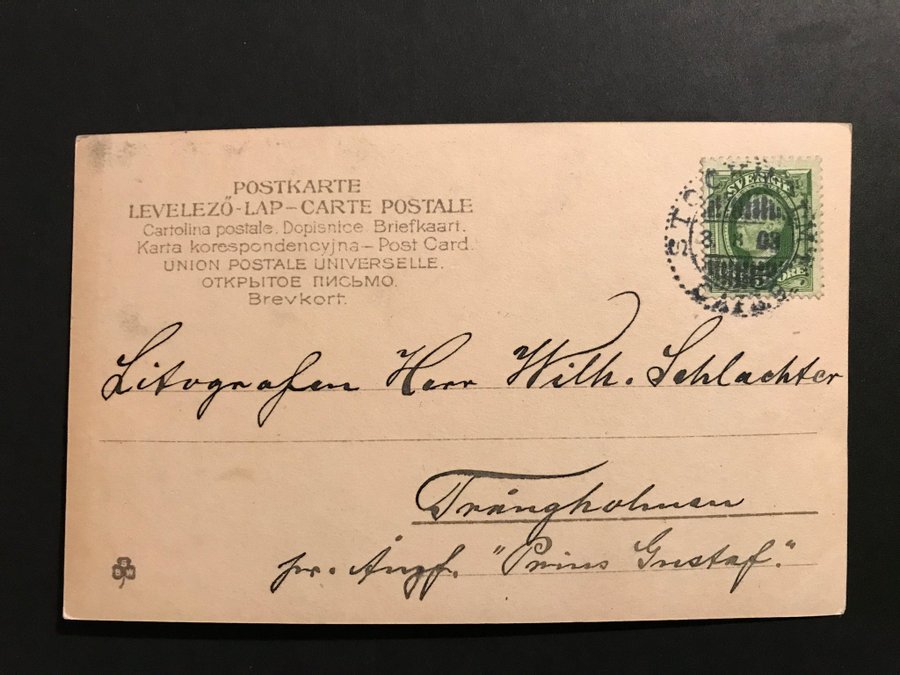 POSTKARTE
LEVELEZŐ-LAP – CARTE POSTALE
Cartolina postale. Dopisnice Briefkaart.
Karta korespondencyjna – Post Card.
UNION POSTALE UNIVERSELLE.
ОТКРЫТОЕ ПИСЬМО.
Brevkort.
SVERIGE
ÖRE
STOCKHOLM
8 8 03
Litografen Herr Wilh. Schlachter
Trångholmen
pr. Ångf. "Prins Gustaf."